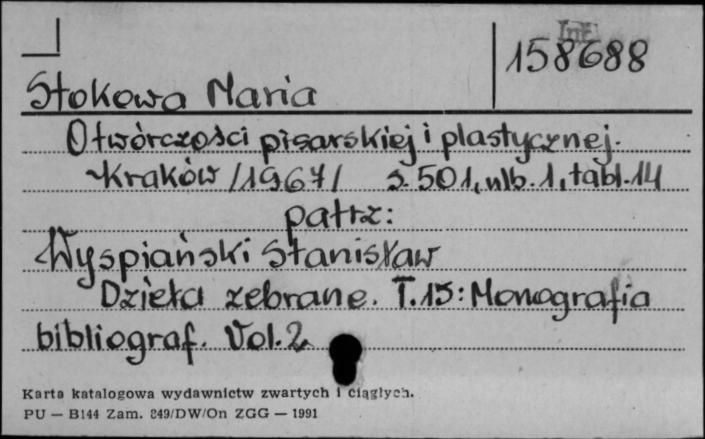 Inf.
158688
Stokowa Maria
O twórczości pisarskiej i plastycznej.
Kraków /1967/ s. 501, nlb. 1, tabl. 14
patrz:
Wyspiański Stanisław
Dzieła zebrane. T. 15: Monografia
bibliograf. Vol. 2
Karta katalogowa wydawnictw zwartych i ciągłych.
PU — B144 Zam. 849/DW/On ZGG — 1991